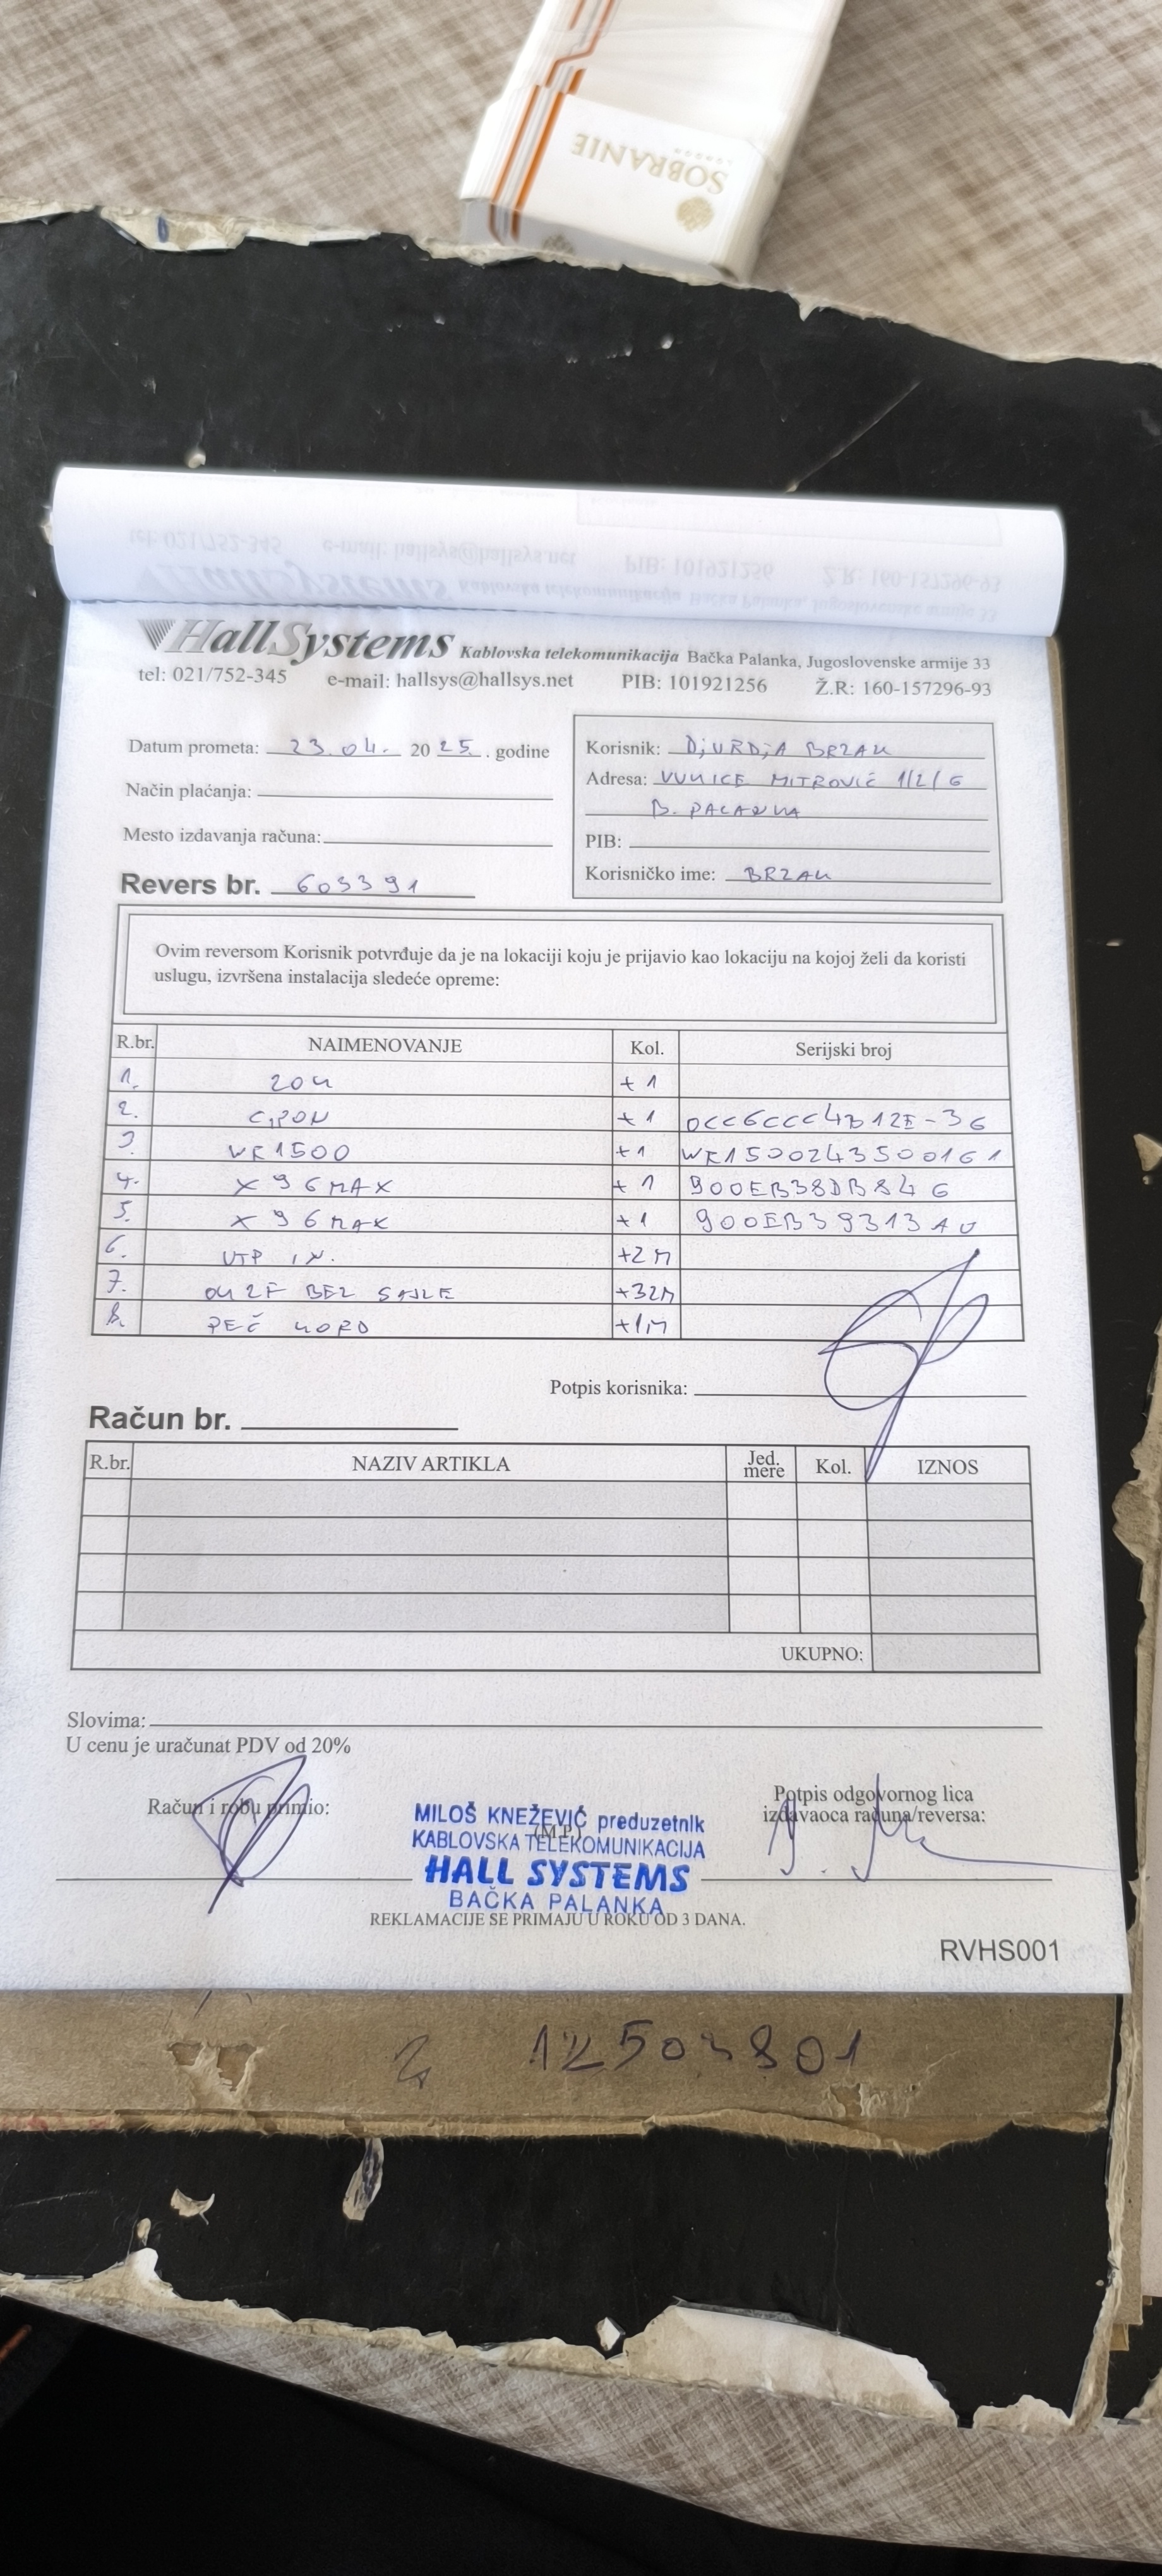 SOBRANIE
LONDON
HallSystems Kablovska telekomunikacija Bačka Palanka, Jugoslovenske armije 33
tel: 021/752-345 e-mail: hallsys@hallsys.net PIB: 101921256 Ž.R: 160-157296-93
Datum prometa: 23.04. 2025. godine
Način plaćanja:
Mesto izdavanja računa:
Revers br. 603391
Korisnik: DjURDjA BRZAK
Adresa: VUKICE MITROVIĆ 1/2/6
B. PALANKA
PIB:
Korisničko ime: BRZAK
Ovim reversom Korisnik potvrđuje da je na lokaciji koju je prijavio kao lokaciju na kojoj želi da koristi
uslugu, izvršena instalacija sledeće opreme:
R.br. NAIMENOVANJE Kol. Serijski broj
1. ZOK +1
2. GPON +1 0CC6CCC4B12E-36
3. WR1500 +1 WR1500243500161
4. X96MAX +1 900EB38DB846
5. X96MAX +1 900EB39313A0
6. UTP IN. +2M
7. OK 2F BEZ SAJLE +32M
8. PEČ KORD +1M
Potpis korisnika:
Račun br.
R.br. NAZIV ARTIKLA Jed. mere Kol. IZNOS
UKUPNO:
Slovima:
U cenu je uračunat PDV od 20%
Račun i robu primio:
(M.P.)
Potpis odgovornog lica
izdavaoca računa/reversa:
MILOŠ KNEŽEVIĆ preduzetnik
KABLOVSKA TELEKOMUNIKACIJA
HALL SYSTEMS
BAČKA PALANKA
REKLAMACIJE SE PRIMAJU U ROKU OD 3 DANA.
RVHS001